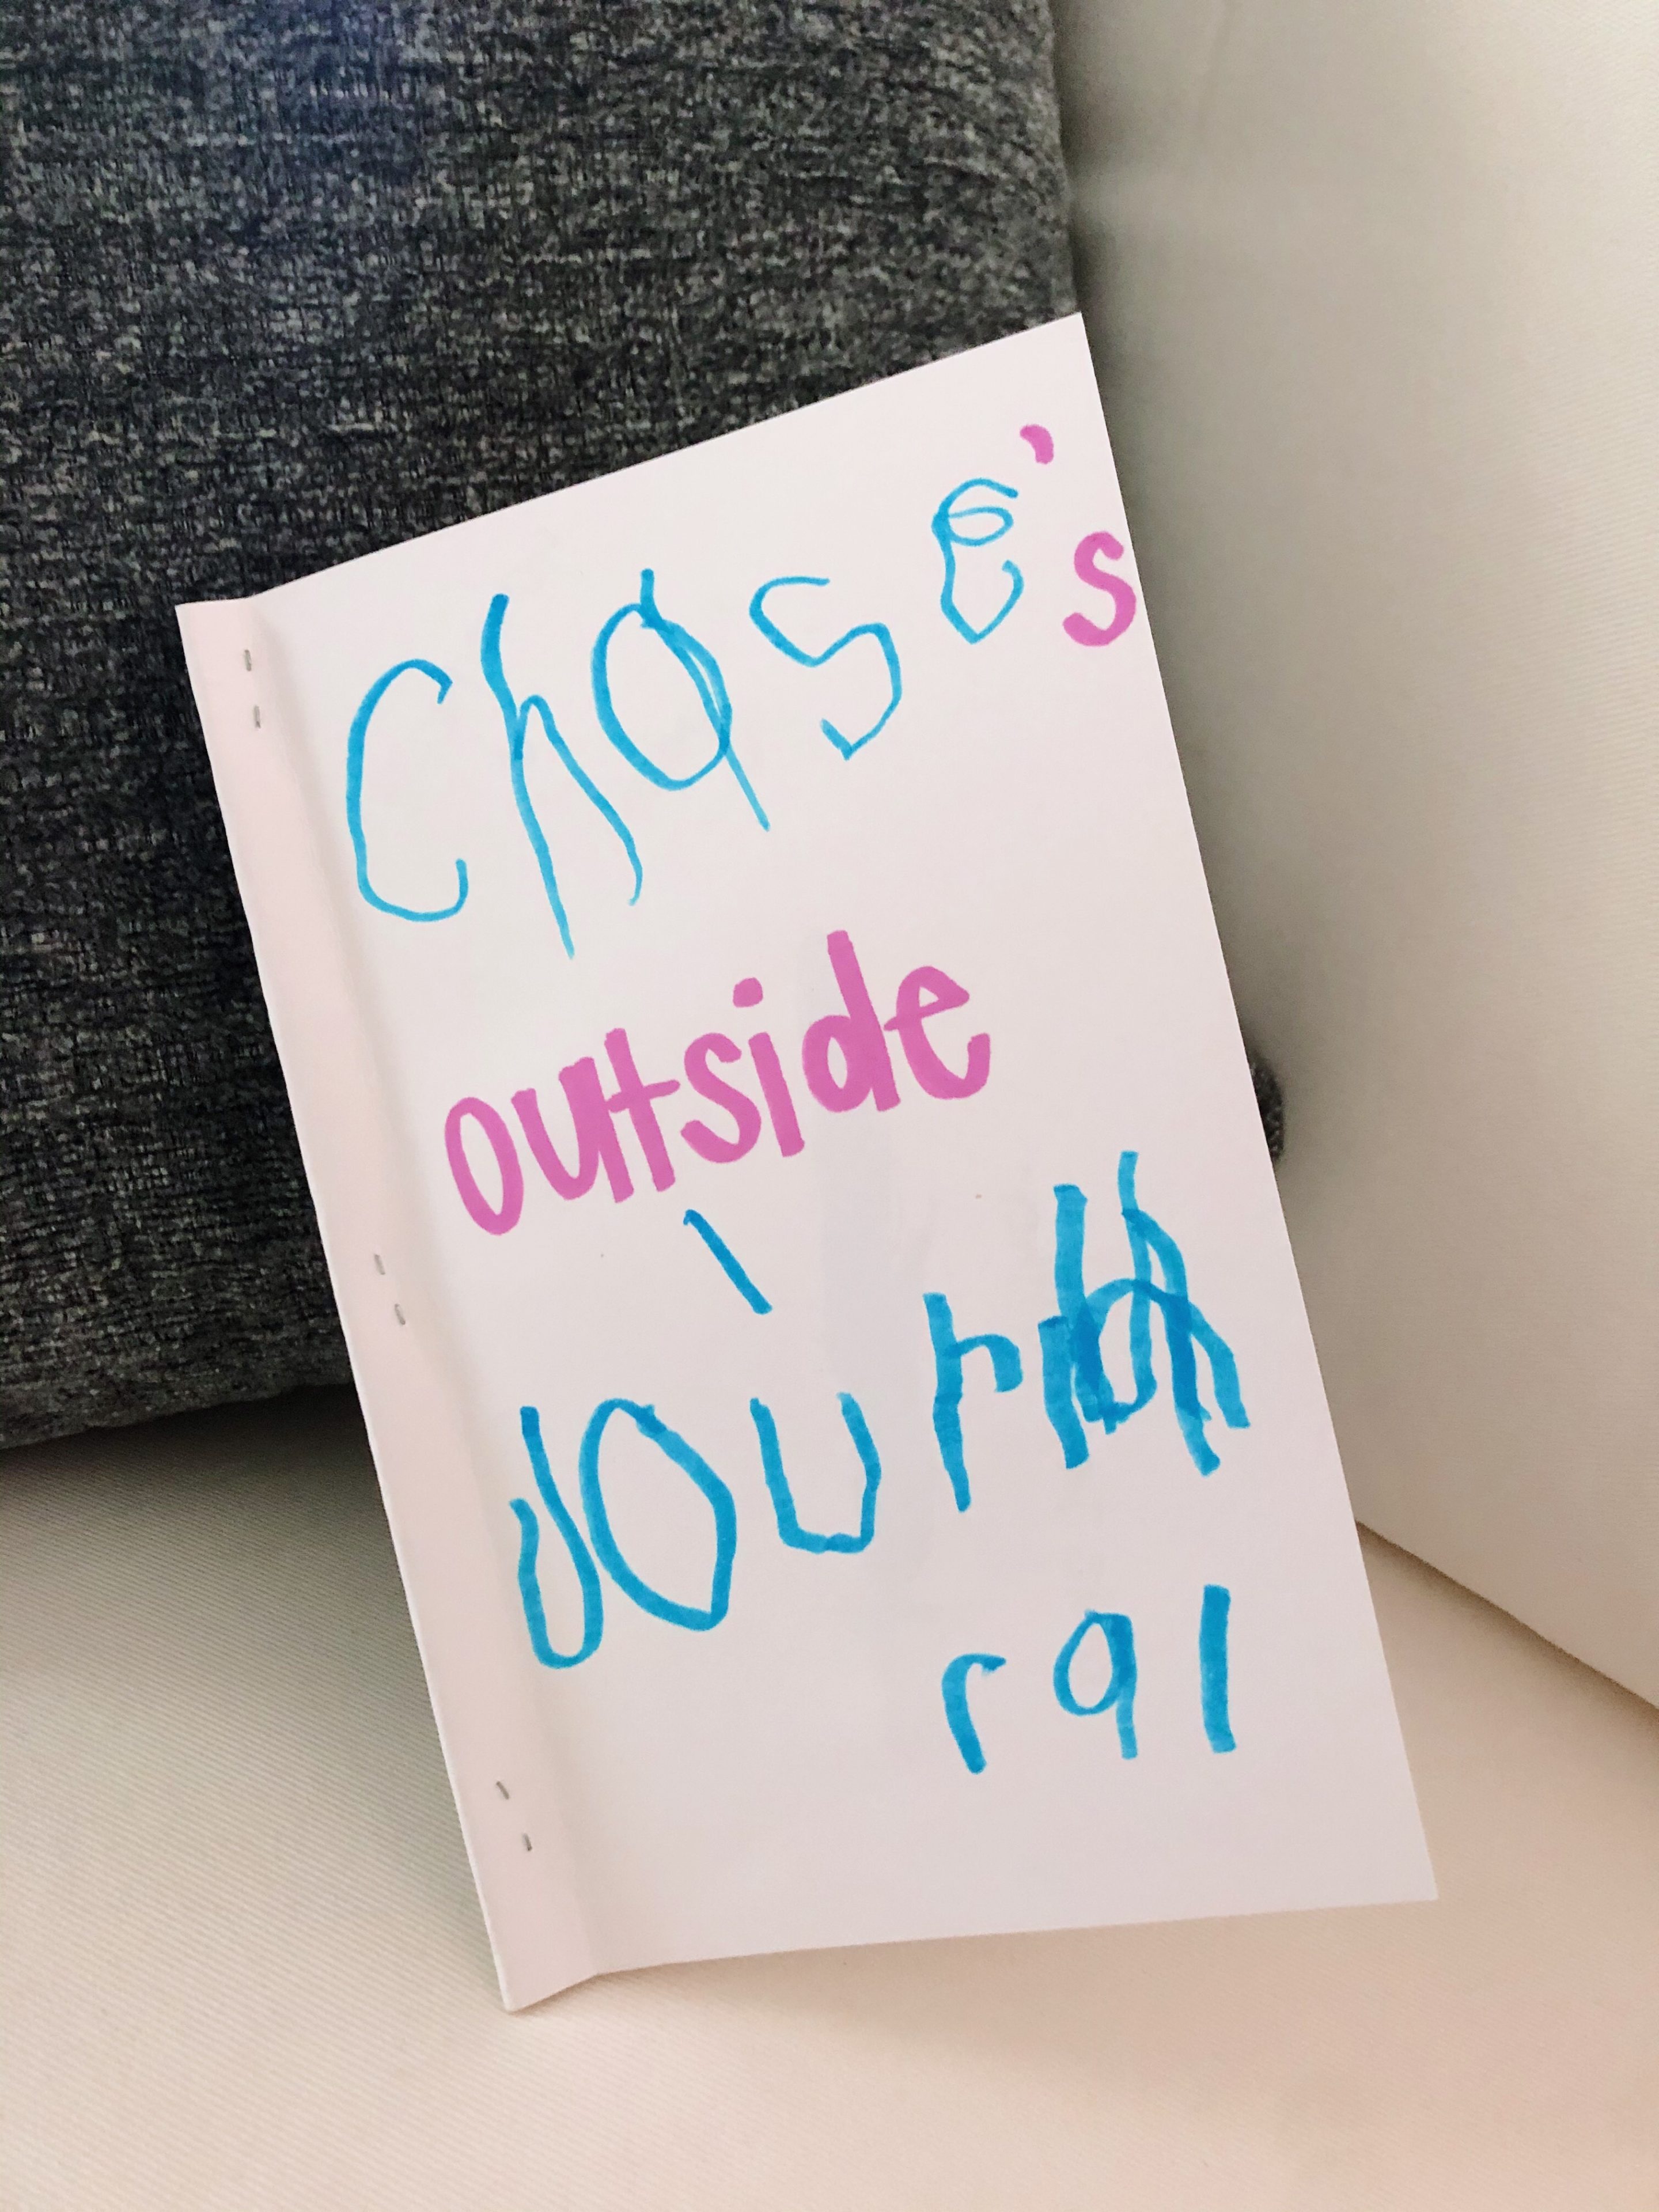 Chase's
outside
Jour
ral